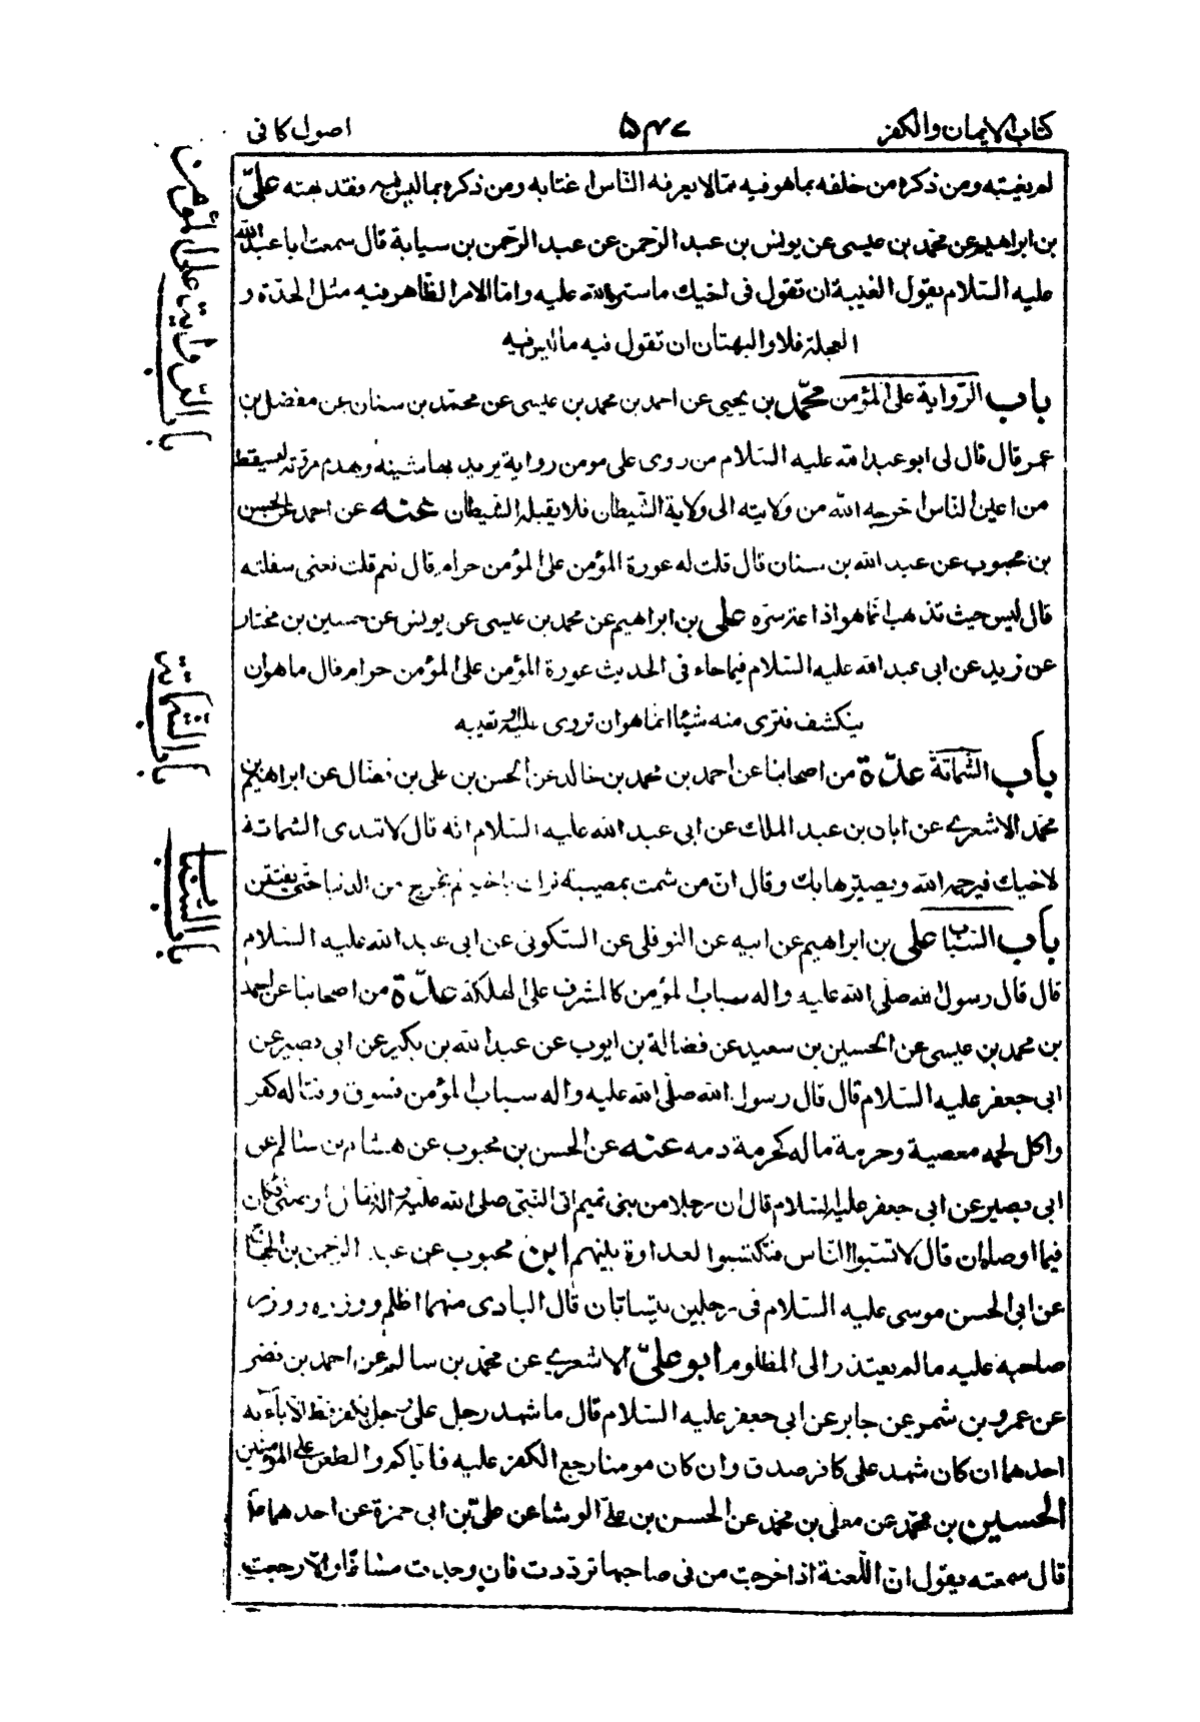 كتاب الايمان والكفر ۵۴۷ اصول كافى
لم يغتبه ومن ذكره من خلفه بما هو فيه مما لا يعرفه الناس اغتابه ومن ذكره بما ليس فيه فقد بهته علىّ
بن ابراهيم عن محمد بن عيسى عن يونس بن عبد الرحمن عن عبد الرحمن بن سيابة قال سمعت ابا عبد الله
عليه السّلام يقول الغيبة ان تقول فى اخيك ما ستره الله عليه واما الامر الظاهر فيه مثل الحدة و
العجلة فلا والبهتان ان تقول فيه ما ليس فيه
باب الرّواية على المؤمن محمّد بن يحيى عن احمد بن محمد بن عيسى عن محمّد بن سنان عن مفضل بن
عمر قال قال لى ابو عبد الله عليه السّلام من روى على مومن رواية يريد بها شينه وهدم مروته ليسقط
من اعين الناس اخرجه الله من ولايته الى ولاية الشّيطان فلا يقبله الشيطان عنه عن احمد عن الحسن
بن محبوب عن عبد الله بن سنان قال قلت له عورة المؤمن على المؤمن حرام قال نعم قلت تعنى سفلته
قال ليس حيث تذهب انّما هو اذاعة سرّه على بن ابراهيم عن محمد بن عيسى عن يونس عن حسين بن مختار
عن زيد عن ابى عبد الله عليه السّلام فيما جاء فى الحديث عورة المؤمن على المؤمن حرام قال ما هو ان
ينكشف فترى منه شيئا انما هو ان تروى عليه او تعيبه
باب الشّماتة عدّة من اصحابنا عن احمد بن محمد بن خالد عن الحسن بن على بن فضال عن ابراهيم بن
محمّد الاشعرى عن ابان بن عبد الملك عن ابى عبد الله عليه السّلام انه قال لا تبدى الشماتة
لاخيك فيرحمه الله ويصيّرها بك وقال انّ من شمت بمصيبة نزلت باخيه لم يخرج من الدنيا حتّى يفتتن
باب السّباب على بن ابراهيم عن ابيه عن النوفلى عن السّكونى عن ابى عبد الله عليه السّلام
قال قال رسول الله صلّى الله عليه واله سباب المؤمن كالمشرف على الهلكة عدّة من اصحابنا عن احمد
بن محمد بن عيسى عن الحسين بن سعيد عن فضالة بن ايوب عن عبد الله بن بكير عن ابى بصير عن
ابى جعفر عليه السّلام قال قال رسول الله صلّى الله عليه واله سباب المؤمن فسوق وقتاله كفر
واكل لحمه معصية وحرمة ماله كحرمة دمه عنه عن الحسن بن محبوب عن هشام بن سالم عن
ابى بصير عن ابى جعفر عليه السّلام قال ان رجلا من بنى تميم اتى النّبىّ صلى الله عليه واله فقال اوصنى فكان
فيما اوصاه ان قال لا تسبّوا النّاس فتكتسبوا العداوة بينهم ابن محبوب عن عبد الرحمن بن الحجاج
عن ابى الحسن موسى عليه السّلام فى رجلين يتسابّان قال البادى منهما اظلم ووزره ووزر
صاحبه عليه ما لم يعتذر الى المظلوم ابو علىّ الاشعرى عن محمّد بن سالم عن احمد بن نضر
عن عمرو بن شمر عن جابر عن ابى جعفر عليه السّلام قال ما شهد رجل على رجل بكفر قط الا باء به
احدهما ان كان شهد على كافر صدق وان كان مومنا رجع الكفر عليه فاياكم والطعن على المؤمنين
الحسين بن محمّد عن معلّى بن محمّد عن الحسن بن علىّ الوشا عن علىّ بن ابى حمزة عن احدهما عا
قال سمعته يقول انّ اللّعنة اذا خرجت من فى صاحبها تردّدت فان وجدت مساغا والّا رجعت
باب الرواية على المؤمن
باب الشماتة
باب السباب